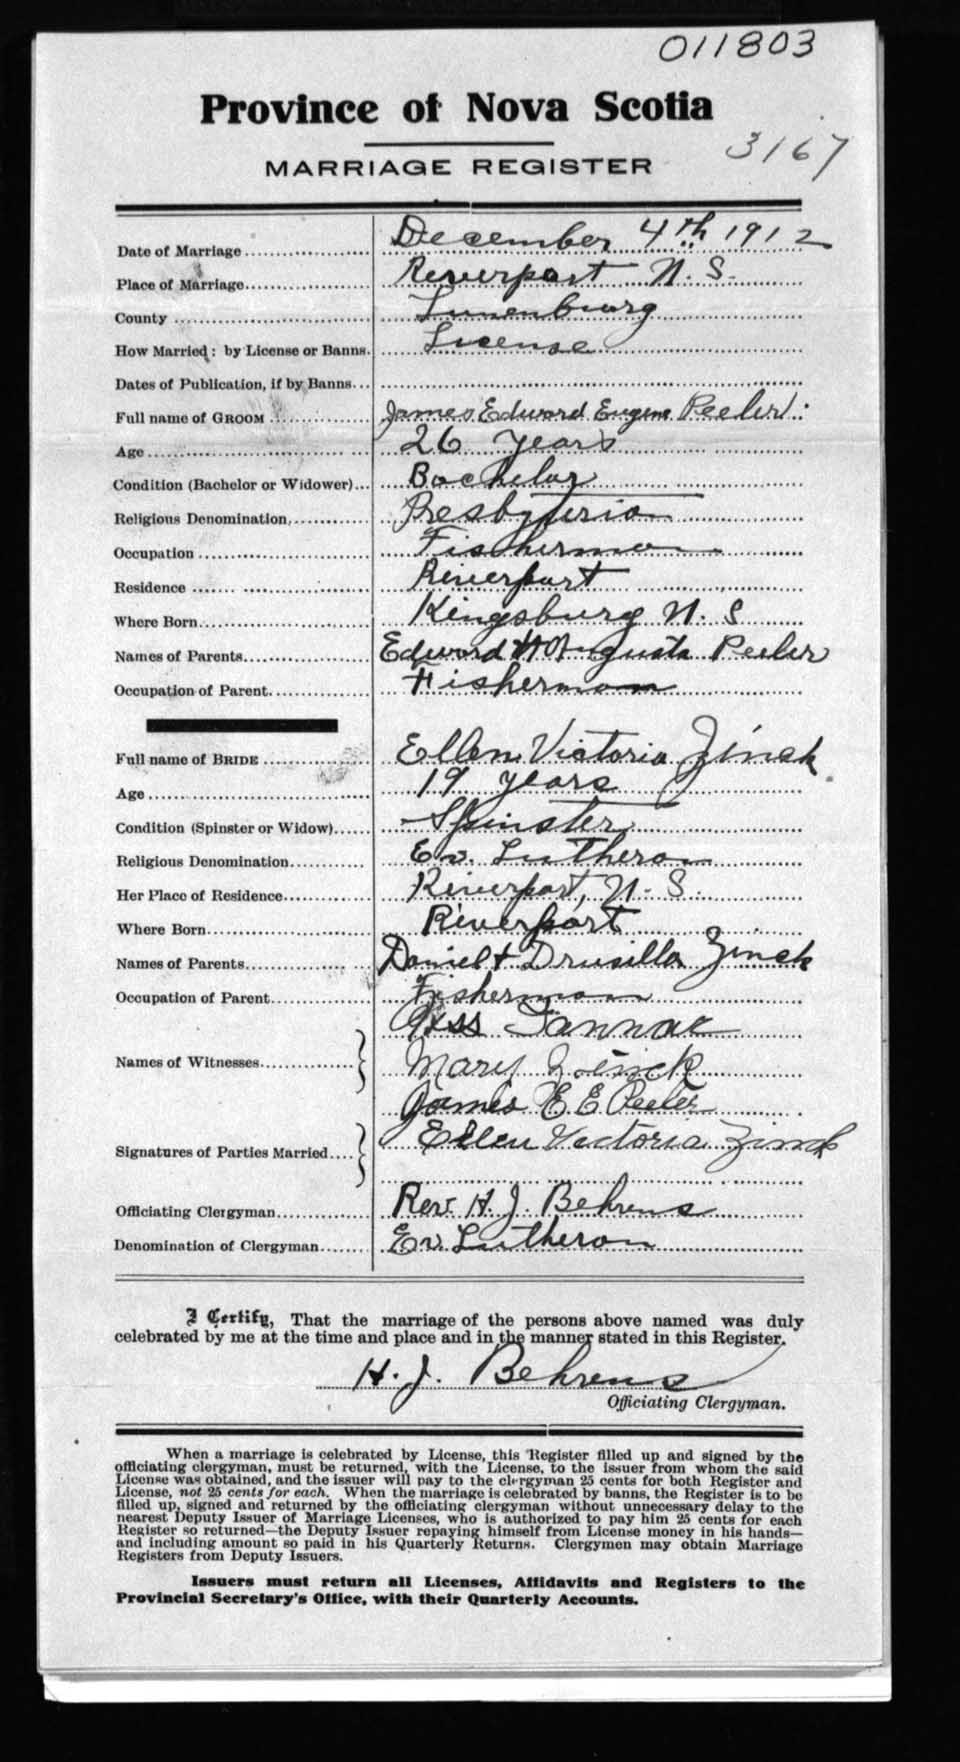 011803
Province of Nova Scotia
3167
MARRIAGE REGISTER
Date of Marriage December 4th 1912
Place of Marriage Riverport N. S.
County Lunenburg
How Married: by License or Banns. License
Dates of Publication, if by Banns
Full name of GROOM James Edward Eugene Peeler
Age 26 years
Condition (Bachelor or Widower) Bachelor
Religious Denomination Presbyteria
Occupation Fischerman
Residence Riverport
Where Born Kingsburg N. S
Names of Parents Edward Augusta Peeler
Occupation of Parent Fisherman
Full name of BRIDE Ellen Victoria Zinck
Age 19 years
Condition (Spinster or Widow) Spinster
Religious Denomination Ev. Lutheran
Her Place of Residence Riverport, N. S.
Where Born Riverport
Names of Parents Daniel + Drusilla Zinck
Occupation of Parent Fisherman
Names of Witnesses
Mary Zinck
James E E Peeler
Signatures of Parties Married Ellen Victoria Zinck
Officiating Clergyman Rev. H. J. Behrens
Denomination of Clergyman Ev. Lutheran
I Certify, That the marriage of the persons above named was duly
celebrated by me at the time and place and in the manner stated in this Register.
H. J. Behrens
Officiating Clergyman.
When a marriage is celebrated by License, this Register filled up and signed by the
officiating clergyman, must be returned, with the License, to the issuer from whom the said
License was obtained, and the issuer will pay to the clergyman 25 cents for both Register and
License, not 25 cents for each. When the marriage is celebrated by banns, the Register is to be
filled up, signed and returned by the officiating clergyman without unnecessary delay to the
nearest Deputy Issuer of Marriage Licenses, who is authorized to pay him 25 cents for each
Register so returned—the Deputy Issuer repaying himself from License money in his hands—
and including amount so paid in his Quarterly Returns. Clergymen may obtain Marriage
Registers from Deputy Issuers.
Issuers must return all Licenses, Affidavits and Registers to the
Provincial Secretary's Office, with their Quarterly Accounts.